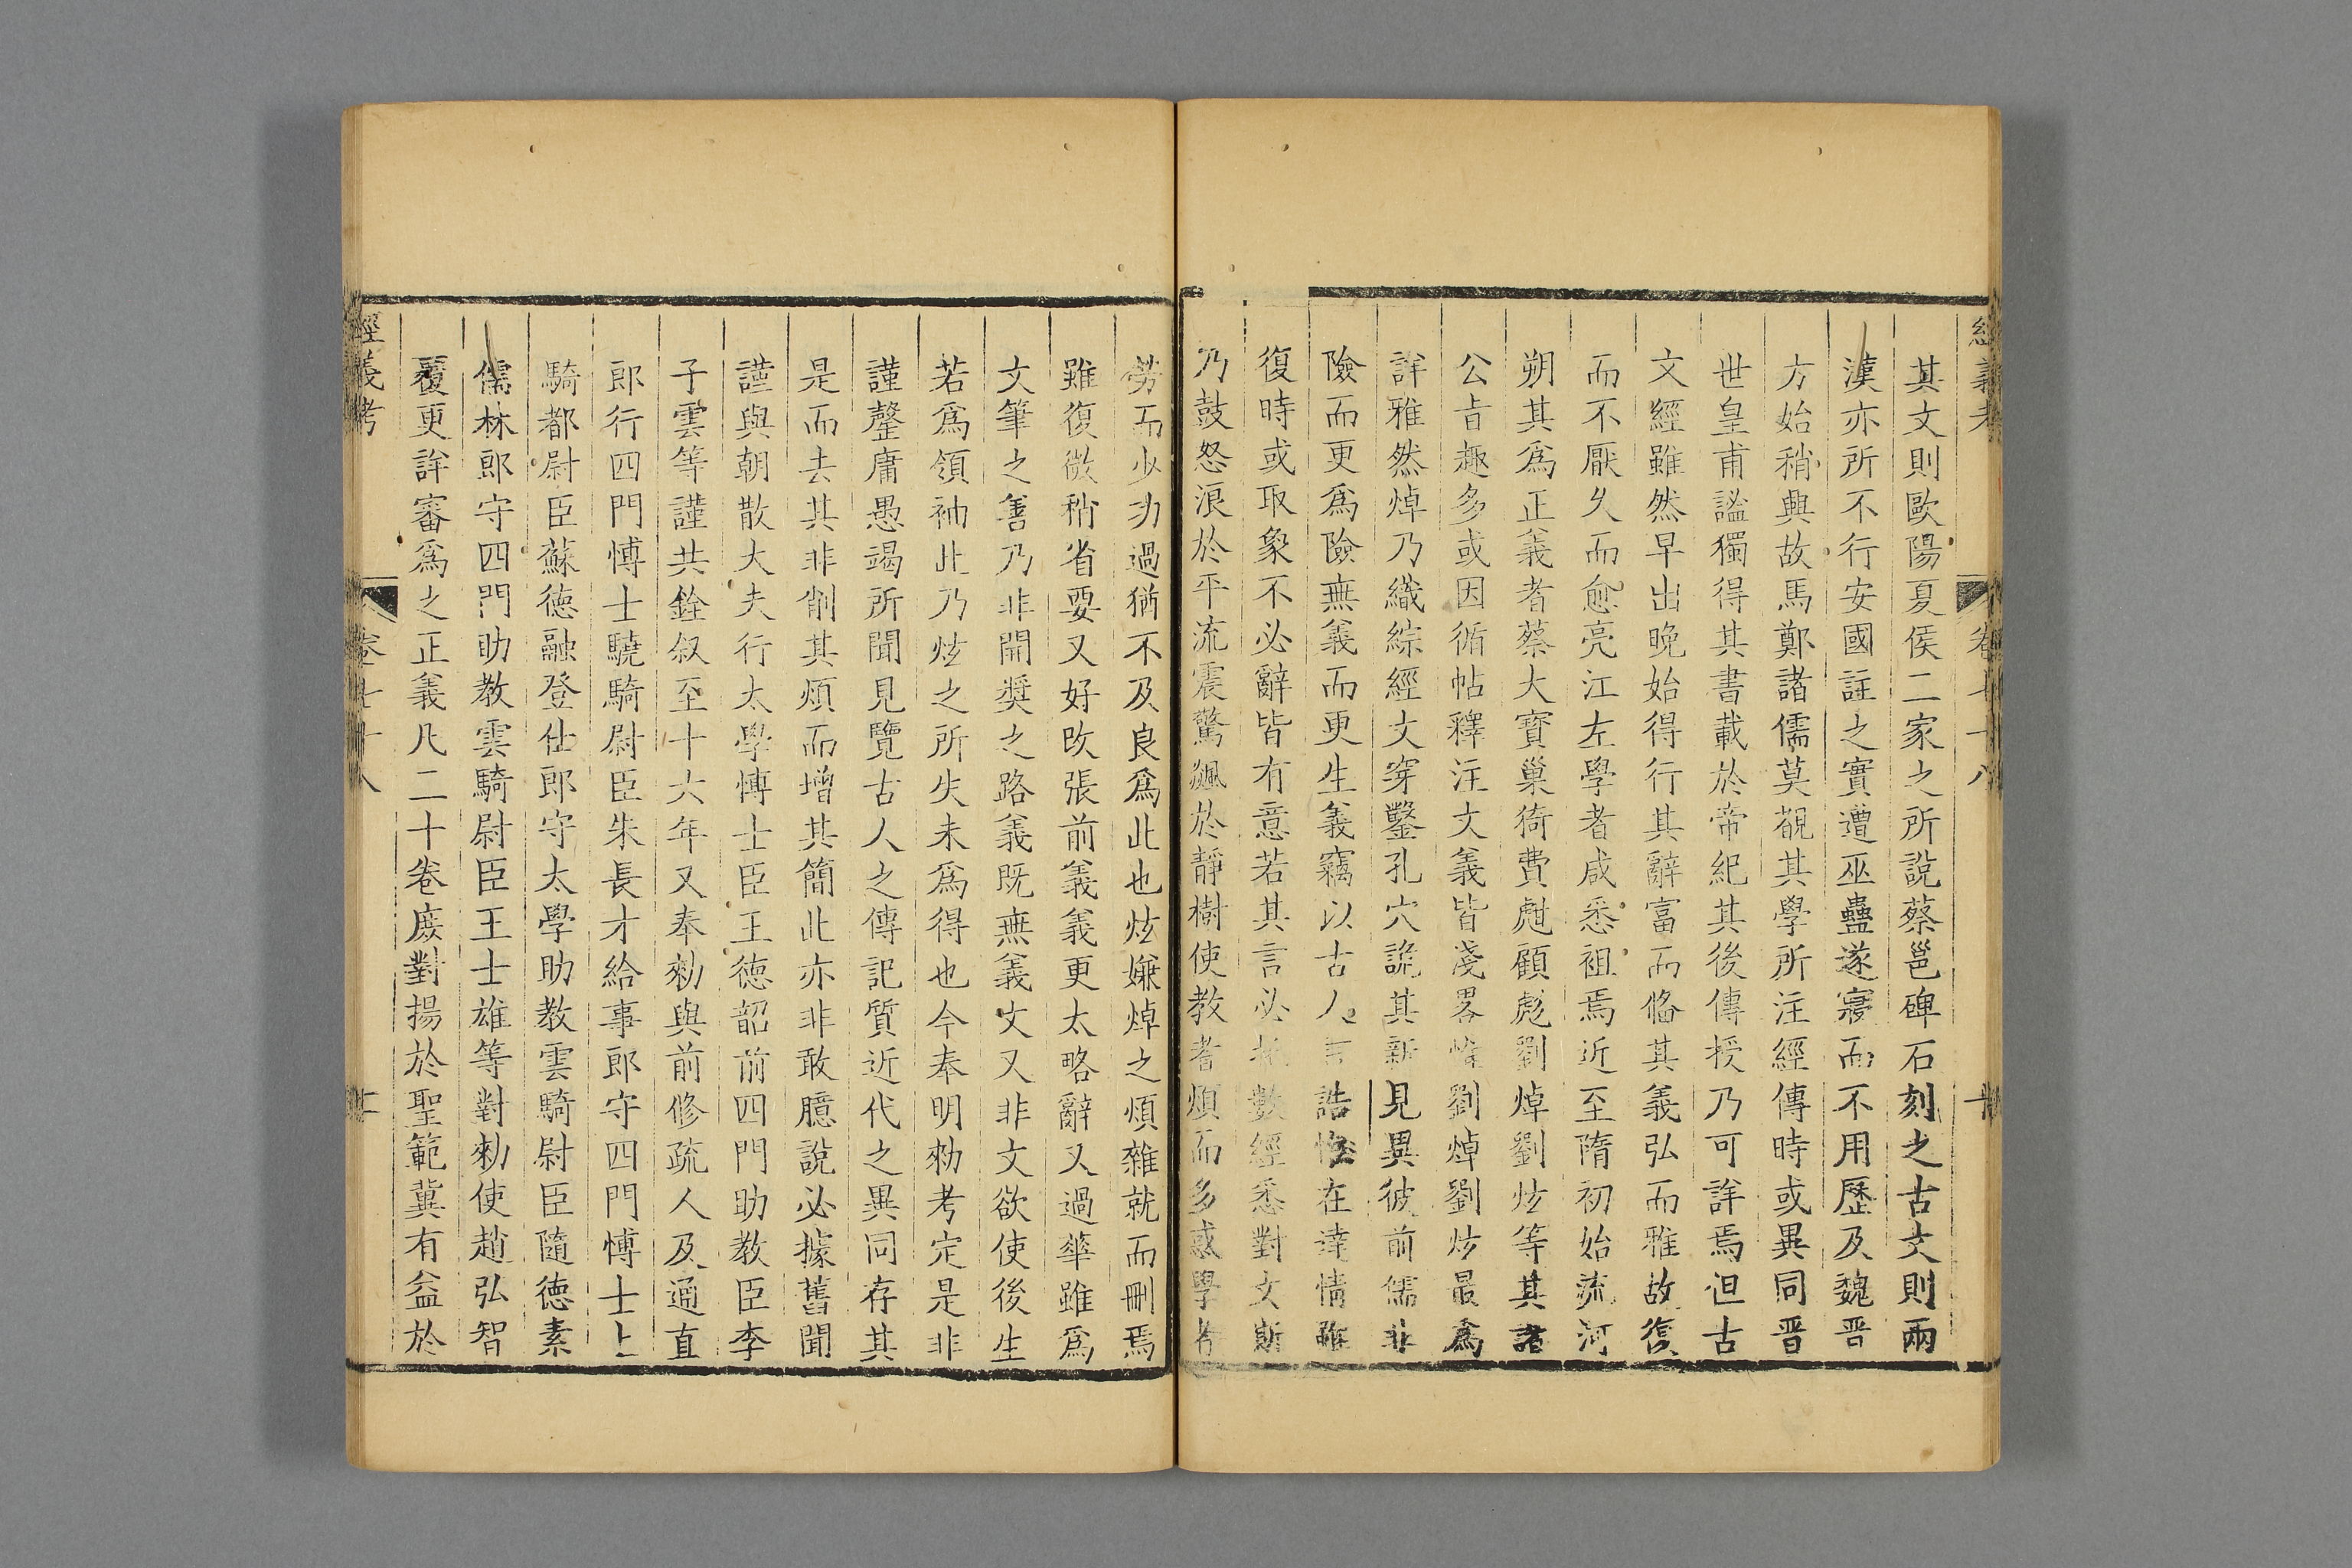 其文則歐陽夏侯二家之所說蔡邕碑石刻之古文則兩
漢亦所不行安國註之實遭巫蠱遂寢而不用歷及魏晉
方始稍興故馬鄭諸儒莫覩其學所注經傳時或異同晉
世皇甫謐獨得其書載於帝紀其後傳授乃可詳焉但古
文經雖然早出晚始得行其辭富而偹其義弘而雅故復
而不厭久而愈亮江左學者咸悉祖焉近至隋初始流河
朔其為正義者蔡大寶巢猗費甝顧彪劉焯劉炫等其諸
公旨趣多或因循帖釋注文義皆淺畧惟劉焯劉炫最為
詳雅然焯乃織綜經文穿鑿孔穴詭其新見異彼前儒非
險而更為險無義而更生義竊以古人言誥惟在達情雖
復時或取象不必辭皆有意若其言必托數經悉對文斯
乃鼓怒浪於平流震驚飈於靜樹使教者煩而多惑學者
勞而少功過猶不及良為此也炫嫌焯之煩雜就而刪焉
雖復微稍省要又好改張前義義更太略辭又過華雖為
文筆之善乃非開奬之路義既無義文又非文欲使後生
若為領袖此乃炫之所失未為得也今奉明勑考定是非
謹罄庸愚竭所聞見覽古人之傳記質近代之異同存其
是而去其非削其煩而增其簡此亦非敢臆說必據舊聞
謹與朝散大夫行太學博士臣王德韶前四門助教臣李
子雲等謹共銓叙至十六年又奉勑與前修疏人及通直
郎行四門博士驍騎尉臣朱長才給事郎守四門博士上
騎都尉臣蘇德融登仕郎守太學助教雲騎尉臣隨德素
儒林郎守四門助教雲騎尉臣王士雄等對勑使趙弘智
覆更詳審為之正義凡二十卷庶對揚於聖範冀有益於
經義考 卷七十八 十一